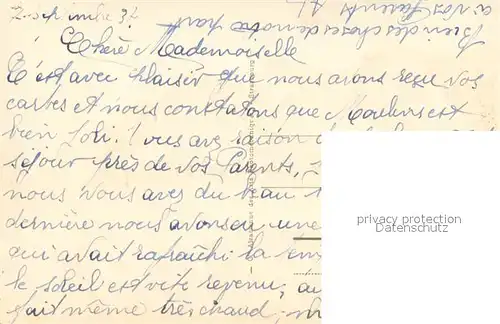 2 septembre 37
Chère Mademoiselle
C'est avec plaisir que nous avons reçu vos
cartes et nous constatons que Moulins est
bien joli. vous avez raison
séjour près de vos Parents,
nous vous avez du beau
dernière nous avons eu une
qui avait rafraîchi la
le soleil est vite revenu, au
fait même très chaud,
Bien des choses de notre part
à vos Parents
privacy protection
Datenschutz